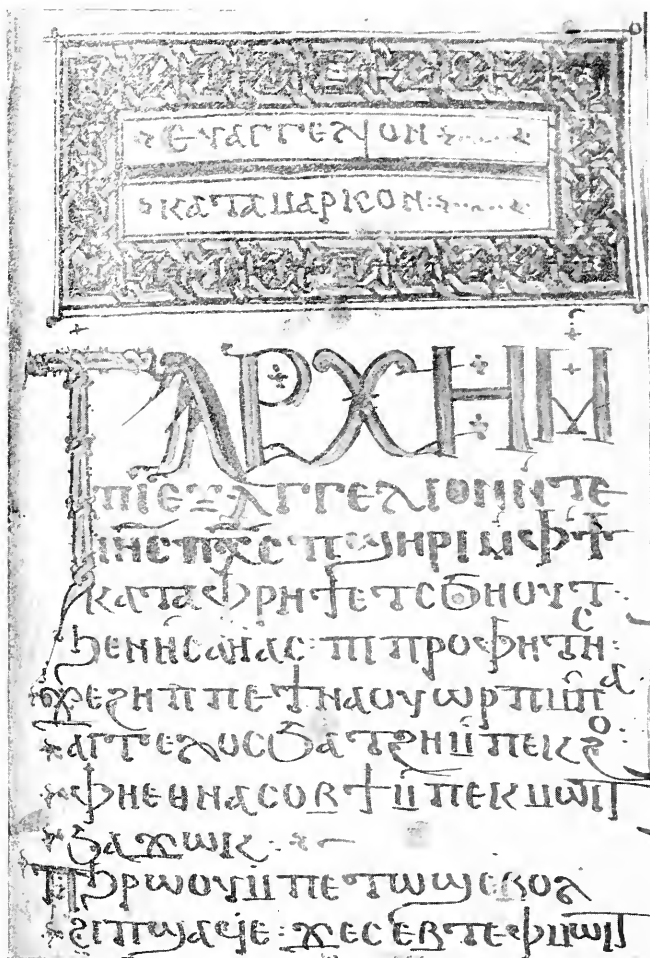 ⲉⲩⲁⲅⲅⲉⲗⲓⲟⲛ
ⲕⲁⲧⲁ ⲙⲁⲣⲕⲟⲛ:
ⲧⲁⲣⲭⲏ ⲙ̀
ⲡⲓⲉⲩⲁⲅⲅⲉⲗⲓⲟⲛ ⲛ̀ⲧⲉ
ⲓⲏⲥ ⲡⲭⲥ ⲡϣⲏⲣⲓ ⲙ̀ⲫϯ
ⲕⲁⲧⲁ ⲫⲣⲏϯ ⲉⲧⲥϧⲏⲟⲩⲧ·
ϧⲉⲛ ⲏⲥⲁⲏⲁⲥ: ⲡⲓⲡⲣⲟⲫⲏⲧⲏⲥ:
ϫⲉ ϩⲏⲡⲡⲉ ϯⲛⲁⲟⲩⲱⲣⲡ ⲙ̀ⲡⲁ
ⲁⲅⲅⲉⲗⲟⲥ ϧⲁⲧϩⲏ ⲙⲡⲉⲕϩⲟ:
ⲫⲏⲉⲑⲛⲁⲥⲟⲃϯ ⲙⲡⲉⲕⲙⲱⲓⲧ
ϧⲁϫⲱⲕ:
ⲡϧⲣⲱⲟⲩ ⲙⲡⲉⲧⲱϣ ⲉⲃⲟⲗ
ϩⲓ ⲡϣⲁϥⲉ: ϫⲉ ⲥⲉⲃⲧⲉ ⲫⲙⲱⲓⲧ